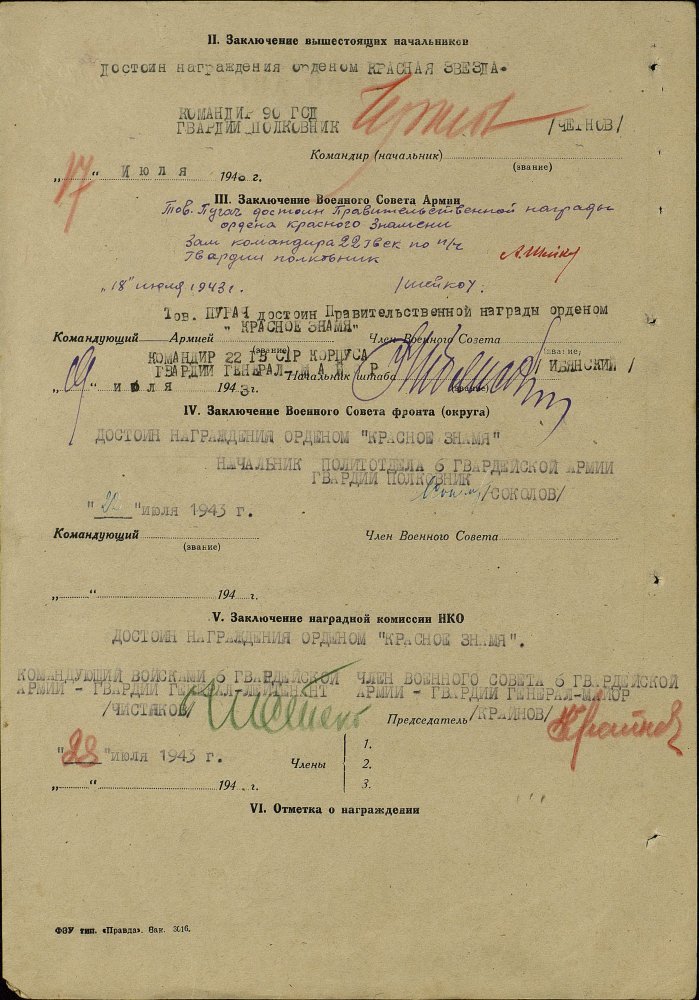 II. Заключение вышестоящих начальников
ДОСТОИН НАГРАЖДЕНИЯ ОРДЕНОМ КРАСНАЯ ЗВЕЗДА.
КОМАНДИР 90 ГСД
ГВАРДИИ ПОЛКОВНИК /ЧЕРНОВ/
Командир (начальник)
(звание)
„17“ ИЮЛЯ 194 г.
III. Заключение Военного Совета Армии
Тов. Пугач достоин Правительственной награды
ордена красного Знамени
Зам командира 22 Гвск по п/ч
Гвардии полковник
„18“ июля 1943г. /шейко/.
Тов. ПУГАЧ достоин Правительственной награды орденом
" КРАСНОЕ ЗНАМЯ"
Командующий Армией Член Военного Совета
(звание) (звание)
КОМАНДИР 22 ГВ СТР КОРПУСА
ГВАРДИИ ГЕНЕРАЛ-МАЙОР Начальник штаба / ИБЯНСКИЙ /
(звание)
„19“ ИЮЛЯ 1943г.
IV. Заключение Военного Совета фронта (округа)
ДОСТОИН НАГРАЖДЕНИЯ ОРДЕНОМ "КРАСНОЕ ЗНАМЯ"
НАЧАЛЬНИК ПОЛИТОТДЕЛА 6 ГВАРДЕЙСКОЙ АРМИИ
ГВАРДИИ ПОЛКОВНИК
/СОКОЛОВ/
"22" июля 1943 г.
Командующий Член Военного Совета
(звание)
„ “ 194 г.
V. Заключение наградной комиссии НКО
ДОСТОИН НАГРАЖДЕНИЯ ОРДЕНОМ "КРАСНОЕ ЗНАМЯ".
КОМАНДУЮЩИЙ ВОЙСКАМИ 6 ГВАРДЕЙСКОЙ ЧЛЕН ВОЕННОГО СОВЕТА 6 ГВАРДЕЙСКОЙ
АРМИИ - ГВАРДИИ ГЕНЕРАЛ-ЛЕЙТЕНАНТ АРМИИ - ГВАРДИИ ГЕНЕРАЛ-МАЙОР
/ЧИСТЯКОВ/ Председатель /КРАЙНОВ/
"28" июля 1943 г.
Члены
1.
2.
3.
„ “ 194 г.
VI. Отметка о награждении
ФЗУ тип. «Правда». Зак. 3016.